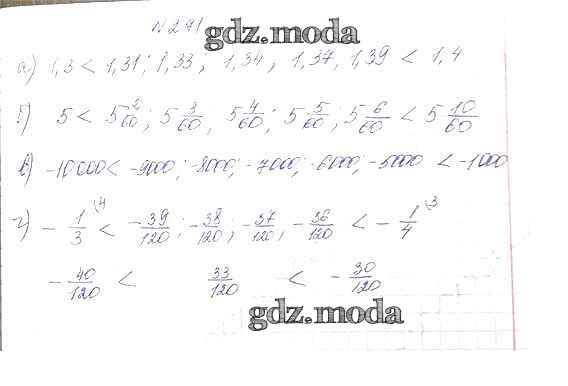 N 271
gdz.moda
а) 1,3 < 1,31; 1,33; 1,34, 1,37, 1,39 < 1,4
б) 5 < 5 2/60; 5 3/60, 5 4/60; 5 5/60; 5 6/60 < 5 10/60
в) -10 000 < -9000; -8000; -7000; -6000, -5000 < -1000
г) - 1/3 \4 < -39/120; -38/120; -37/120, -36/120 < - 1/4 \3
- 40/120 < 33/120 < - 30/120
gdz.moda